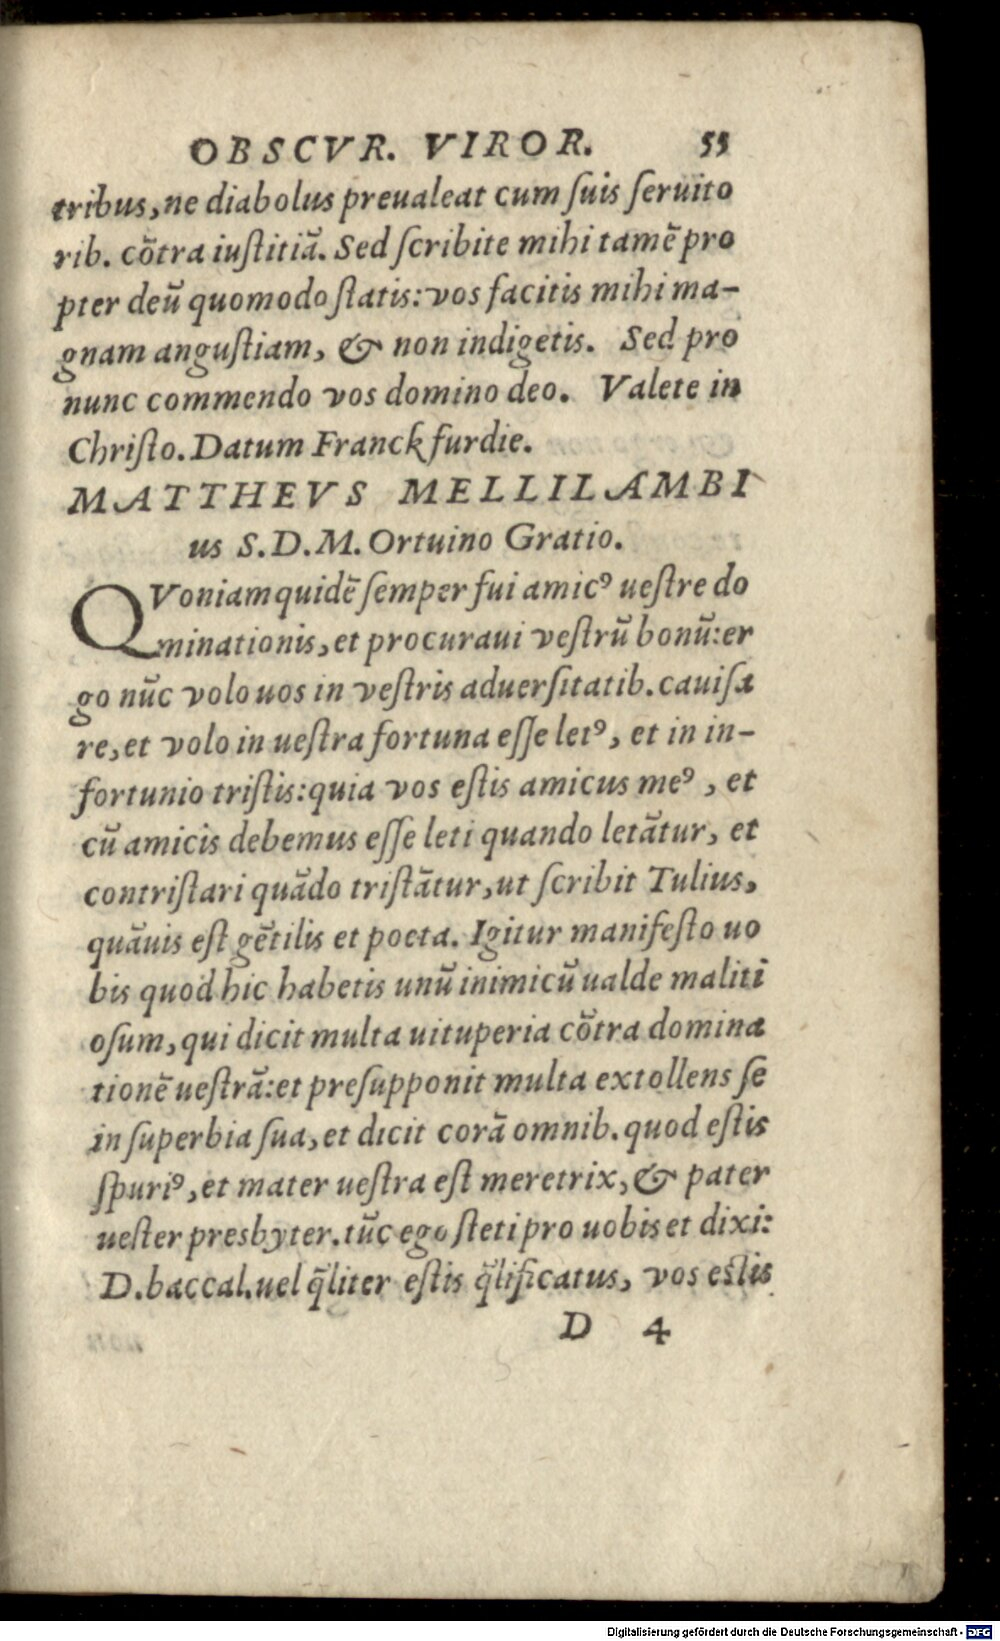 OBSCVR. VIROR. 55
tribus, ne diabolus preualeat cum ſuis ſeruito
rib. cõtra iuſtitiã. Sed ſcribite mihi tamẽ pro
pter deũ quomodo ſtatis: vos facitis mihi ma-
gnam anguſtiam, & non indigetis. Sed pro
nunc commendo vos domino deo. Valete in
Chriſto. Datum Franckfurdie.
MATTHEVS MELLILAMBI
us S.D.M. Ortuino Gratio.
QVoniamquidẽ ſemper fui amicꝰ ueſtre do
minationis, et procuraui veſtrũ bonũ: er
go nũc volo uos in veſtris aduerſitatib. cauiſa
re, et volo in ueſtra fortuna eſſe letꝰ, et in in-
fortunio triſtis: quia vos eſtis amicus meꝰ, et
cũ amicis debemus eſſe leti quando letãtur, et
contriſtari quãdo triſtãtur, ut ſcribit Tulius,
quãuis eſt gẽtilis et poeta. Igitur manifeſto uo
bis quod hic habetis unũ inimicũ ualde maliti
oſum, qui dicit multa uituperia cõtra domina
tionẽ ueſtrã: et preſupponit multa extollens ſe
in ſuperbia ſua, et dicit corã omnib. quod eſtis
ſpuriꝰ, et mater ueſtra eſt meretrix, & pater
ueſter presbyter. tũc ego ſteti pro uobis et dixi:
D. baccal. uel q̃liter eſtis q̃lificatus, vos eſtis
D 4
Digitalisierung gefördert durch die Deutsche Forschungsgemeinschaft - DFG